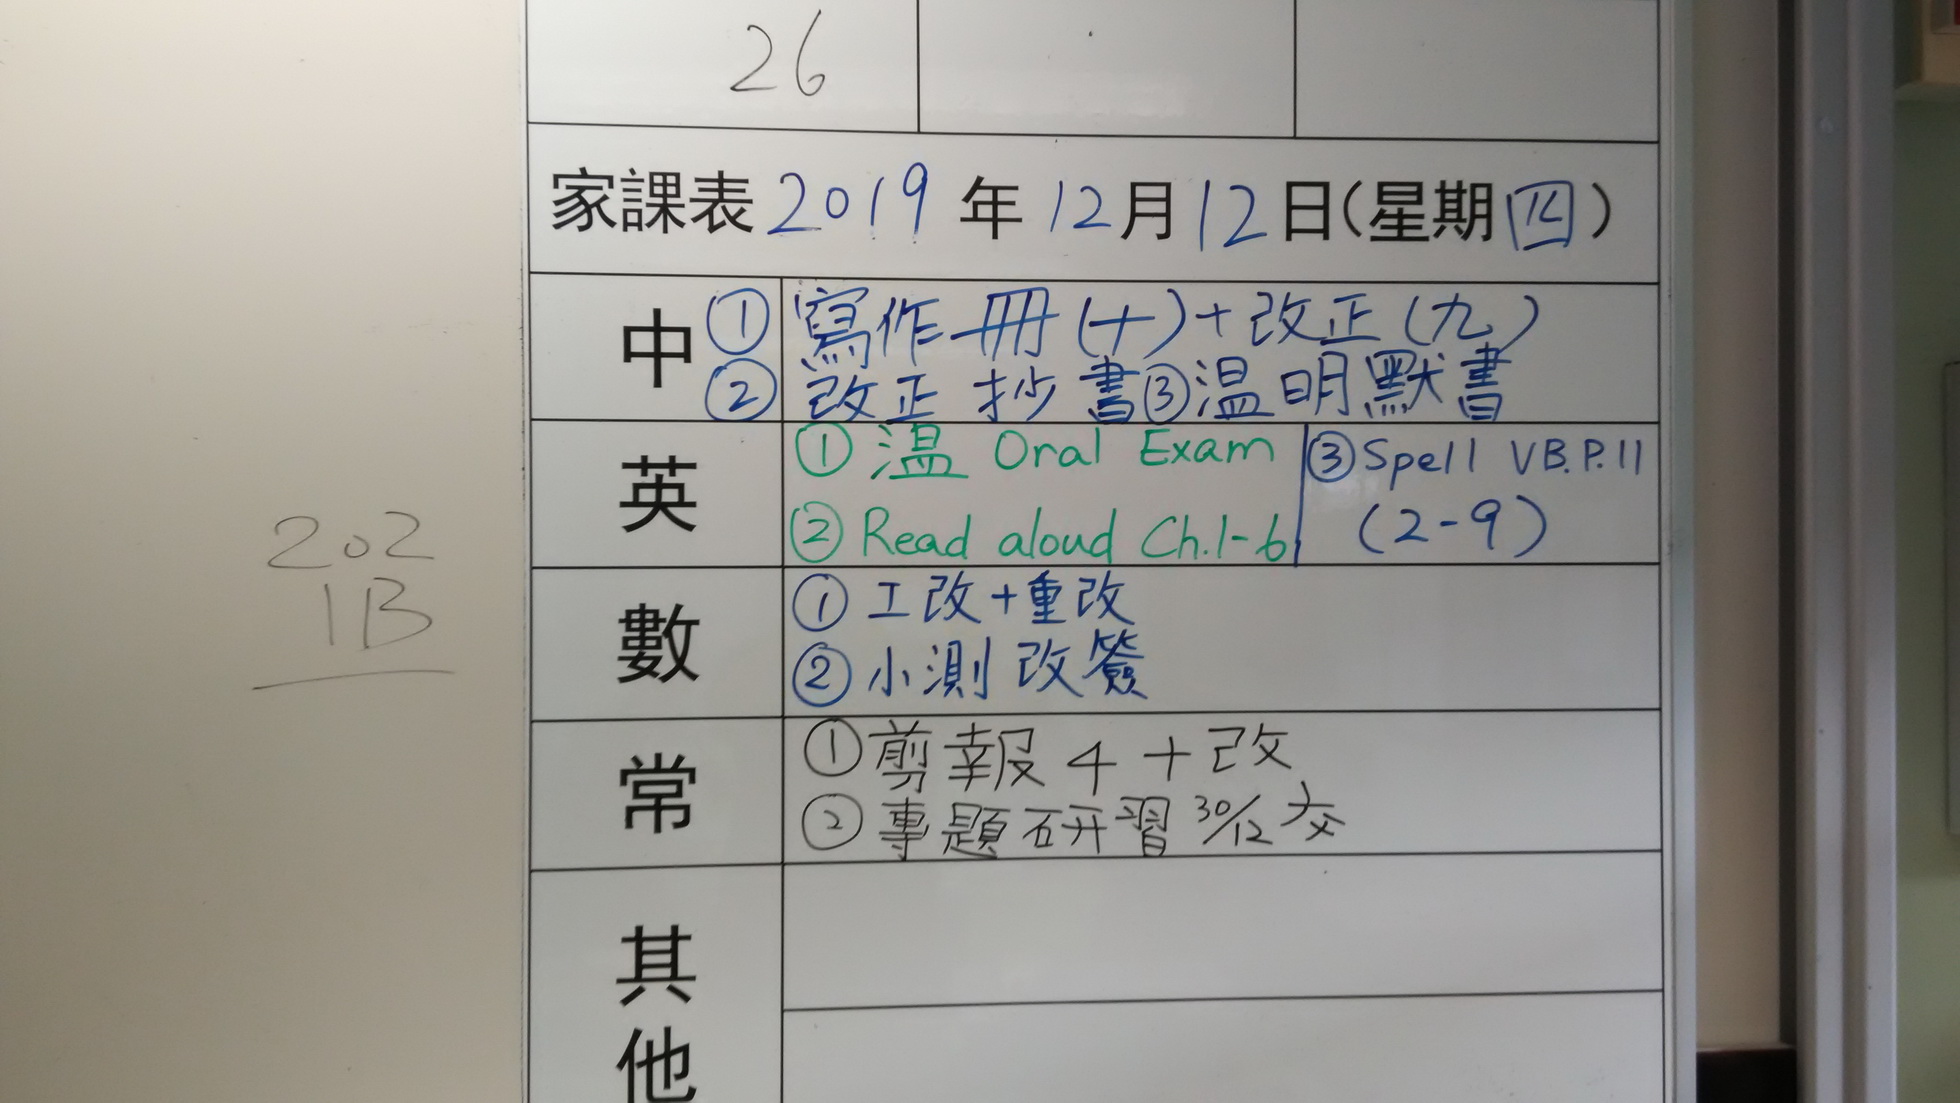 26
家課表 2019 年 12 月 12 日(星期四)
中 ① 寫作冊(十)+改正(九)
② 改正抄書 ③ 温明默書
英 ① 溫 Oral Exam
② Read aloud Ch.1-6
③ Spell VB.P.11
(2-9)
數 ① 工改+重改
② 小測改簽
常 ① 剪報4+改
② 專題研習 30/12 交
其他
202
1B